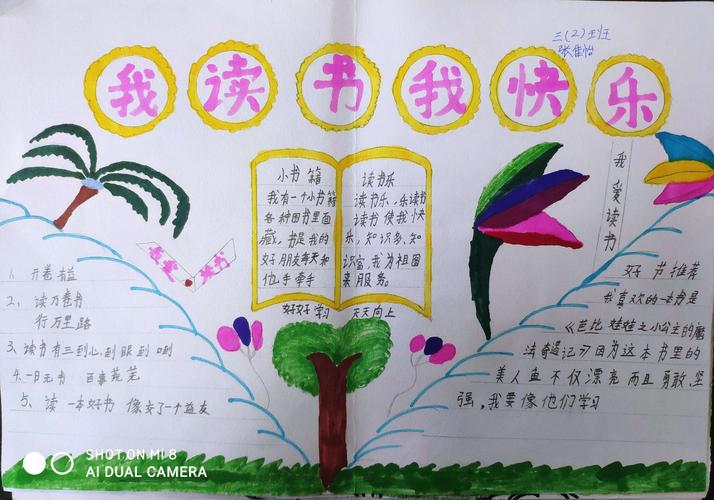 三(2)班
张佳怡
我读书我快乐
小书箱
我有一个小书箱
各种图书里面
藏,书是我的
好朋友每天和
他手牵手
读书乐
读书乐,乐读书
读书使我快
乐,知识多、知
识富,我为祖国
来服务。
好好学习 天天向上
我爱读书
1、开卷有益
2、读万卷书
行万里路
3、读书有三到心到眼到口到
4.一日无书 百事荒芜
5、读一本好书 像交了一个益友
好书推荐
我喜欢的一本书是
《芭比娃娃之小公主的魔
法奇遇记》因为这本书里的
美人鱼不仅漂亮而且勇敢、坚
强,我要像他们学习
SHOT ON MI 8
AI DUAL CAMERA